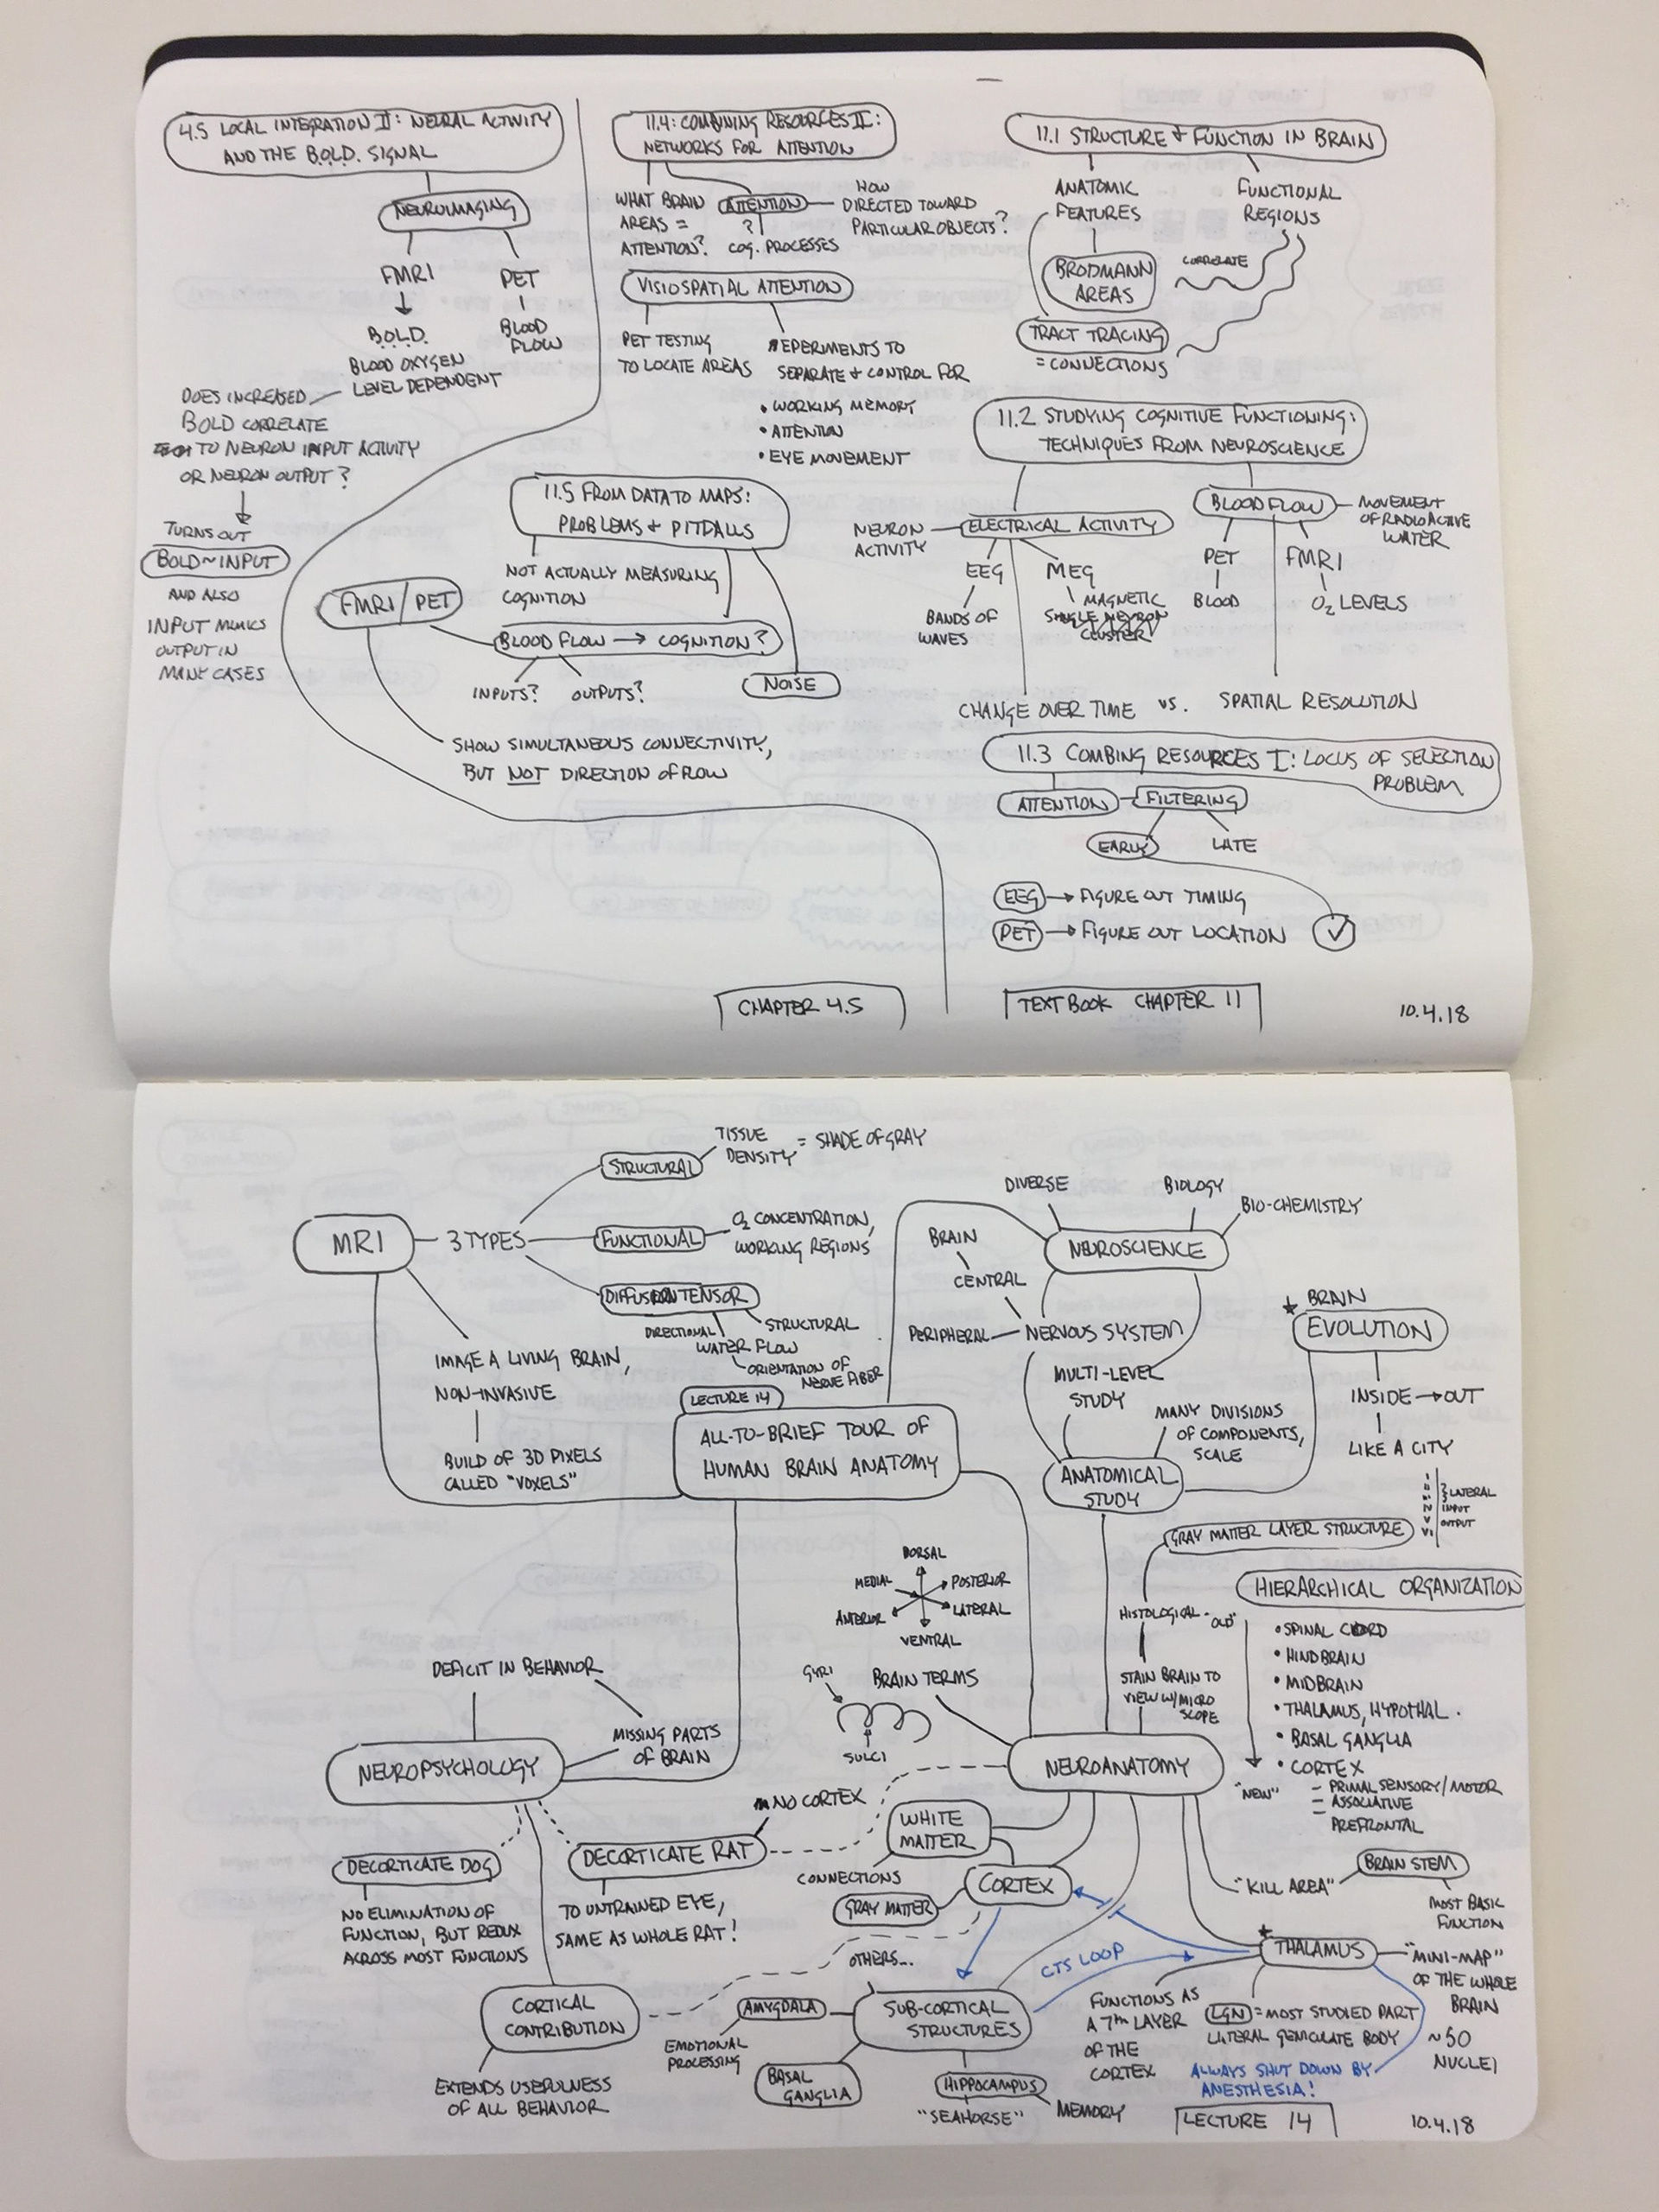 4.5 LOCAL INTEGRATION II: NEURAL ACTIVITY
AND THE B.O.L.D. SIGNAL
NEUROIMAGING
FMRI
PET
B.O.L.D.
BLOOD OXYGEN
LEVEL DEPENDENT
BLOOD
FLOW
DOES INCREASED
BOLD CORRELATE
TO NEURON INPUT ACTIVITY
OR NEURON OUTPUT?
TURNS OUT
BOLD~INPUT
AND ALSO
INPUT MIMICS
OUTPUT IN
MANY CASES
11.4: COMBINING RESOURCES II:
NETWORKS FOR ATTENTION
WHAT BRAIN
AREAS =
ATTENTION?
ATTENTION
?
COG. PROCESSES
HOW
DIRECTED TOWARD
PARTICULAR OBJECTS?
VISIOSPATIAL ATTENTION
PET TESTING
TO LOCATE AREAS
EPERIMENTS TO
SEPARATE & CONTROL FOR
• WORKING MEMORY
• ATTENTION
• EYE MOVEMENT
11.5 FROM DATA TO MAPS:
PROBLEMS & PITDALLS
NOT ACTUALLY MEASURING
COGNITION
FMRI/PET
BLOOD FLOW → COGNITION?
INPUTS?
OUTPUTS?
NOISE
SHOW SIMULTANEOUS CONNECTIVITY,
BUT NOT DIRECTION OF FLOW
CHAPTER 4.5
11.1 STRUCTURE & FUNCTION IN BRAIN
ANATOMIC
FEATURES
FUNCTIONAL
REGIONS
BRODMANN
AREAS
CORRELATE
TRACT TRACING
= CONNECTIONS
11.2 STUDYING COGNITIVE FUNCTIONING:
TECHNIQUES FROM NEUROSCIENCE
NEURON
ACTIVITY
ELECTRICAL ACTIVITY
BLOOD FLOW
MOVEMENT
OF RADIOACTIVE
WATER
EEG
MEG
PET
FMRI
BANDS OF
WAVES
MAGNETIC
SINGLE NEURON
CLUSTER
BLOOD
O2 LEVELS
CHANGE OVER TIME VS. SPATIAL RESOLUTION
11.3 COMBING RESOURCES I: LOCUS OF SELECTION
PROBLEM
ATTENTION
FILTERING
EARLY
LATE
EEG → FIGURE OUT TIMING
PET → FIGURE OUT LOCATION
TEXTBOOK CHAPTER 11
10.4.18
MRI
3 TYPES
STRUCTURAL
TISSUE
DENSITY
= SHADE OF GRAY
FUNCTIONAL
O2 CONCENTRATION,
WORKING REGIONS
DIFFUSION TENSOR
DIRECTIONAL
WATER FLOW
STRUCTURAL
ORIENTATION OF
NERVE FIBER
IMAGE A LIVING BRAIN,
NON-INVASIVE
BUILD OF 3D PIXELS
CALLED "VOXELS"
LECTURE 14
ALL-TO-BRIEF TOUR OF
HUMAN BRAIN ANATOMY
DIVERSE
BIOLOGY
BIO-CHEMISTRY
NEUROSCIENCE
BRAIN
CENTRAL
PERIPHERAL
NERVOUS SYSTEM
MULTI-LEVEL
STUDY
MANY DIVISIONS
OF COMPONENTS,
SCALE
ANATOMICAL
STUDY
BRAIN
EVOLUTION
INSIDE → OUT
LIKE A CITY
GRAY MATTER LAYER STRUCTURE
I
II
III
IV
V
VI
LATERAL
INPUT
OUTPUT
DORSAL
MEDIAL
POSTERIOR
ANTERIOR
LATERAL
VENTRAL
BRAIN TERMS
GYRI
SULCI
HISTOLOGICAL
STAIN BRAIN TO
VIEW W/MICRO
SCOPE
HIERARCHICAL ORGANIZATION
"OLD"
• SPINAL CORD
• HINDBRAIN
• MIDBRAIN
• THALAMUS, HYPOTHAL.
• BASAL GANGLIA
• CORTEX
"NEW"
– PRIMAL SENSORY/MOTOR
– ASSOCIATIVE
– PREFRONTAL
NEUROANATOMY
DEFICIT IN BEHAVIOR
MISSING PARTS
OF BRAIN
NEUROPSYCHOLOGY
NO CORTEX
DECORTICATE DOG
DECORTICATE RAT
NO ELIMINATION OF
FUNCTION, BUT REDUX
ACROSS MOST FUNCTIONS
TO UNTRAINED EYE,
SAME AS WHOLE RAT!
CORTICAL
CONTRIBUTION
EXTENDS USEFULNESS
OF ALL BEHAVIOR
WHITE
MATTER
CONNECTIONS
CORTEX
GRAY MATTER
OTHERS...
AMYGDALA
EMOTIONAL
PROCESSING
SUB-CORTICAL
STRUCTURES
BASAL
GANGLIA
HIPPOCAMPUS
"SEAHORSE"
MEMORY
CTS LOOP
"KILL AREA"
BRAIN STEM
MOST BASIC
FUNCTION
THALAMUS
"MINI-MAP"
OF THE WHOLE
BRAIN
~50
NUCLEI
FUNCTIONS AS
A 7TH LAYER
OF THE
CORTEX
LGN = MOST STUDIED PART
LATERAL GENICULATE BODY
ALWAYS SHUT DOWN BY
ANESTHESIA!
LECTURE 14
10.4.18